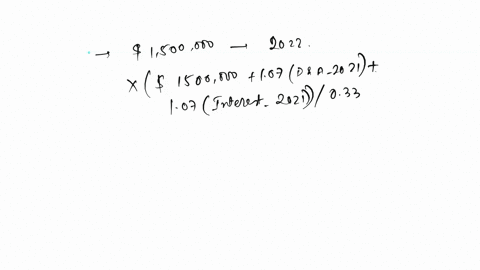 → $1,500,000 — 2022.
x ($ 1500,000 + 1.07 (D&A_2021) +
1.07 (Interest_ 2021)) / 0.33